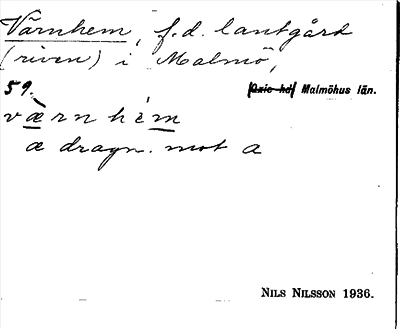 Värnhem, f.d. lantgård
(riven) i Malmö,
59. Oxie hd Malmöhus län.
værn hém
æ dragn. mot a
NILS NILSSON 1936.